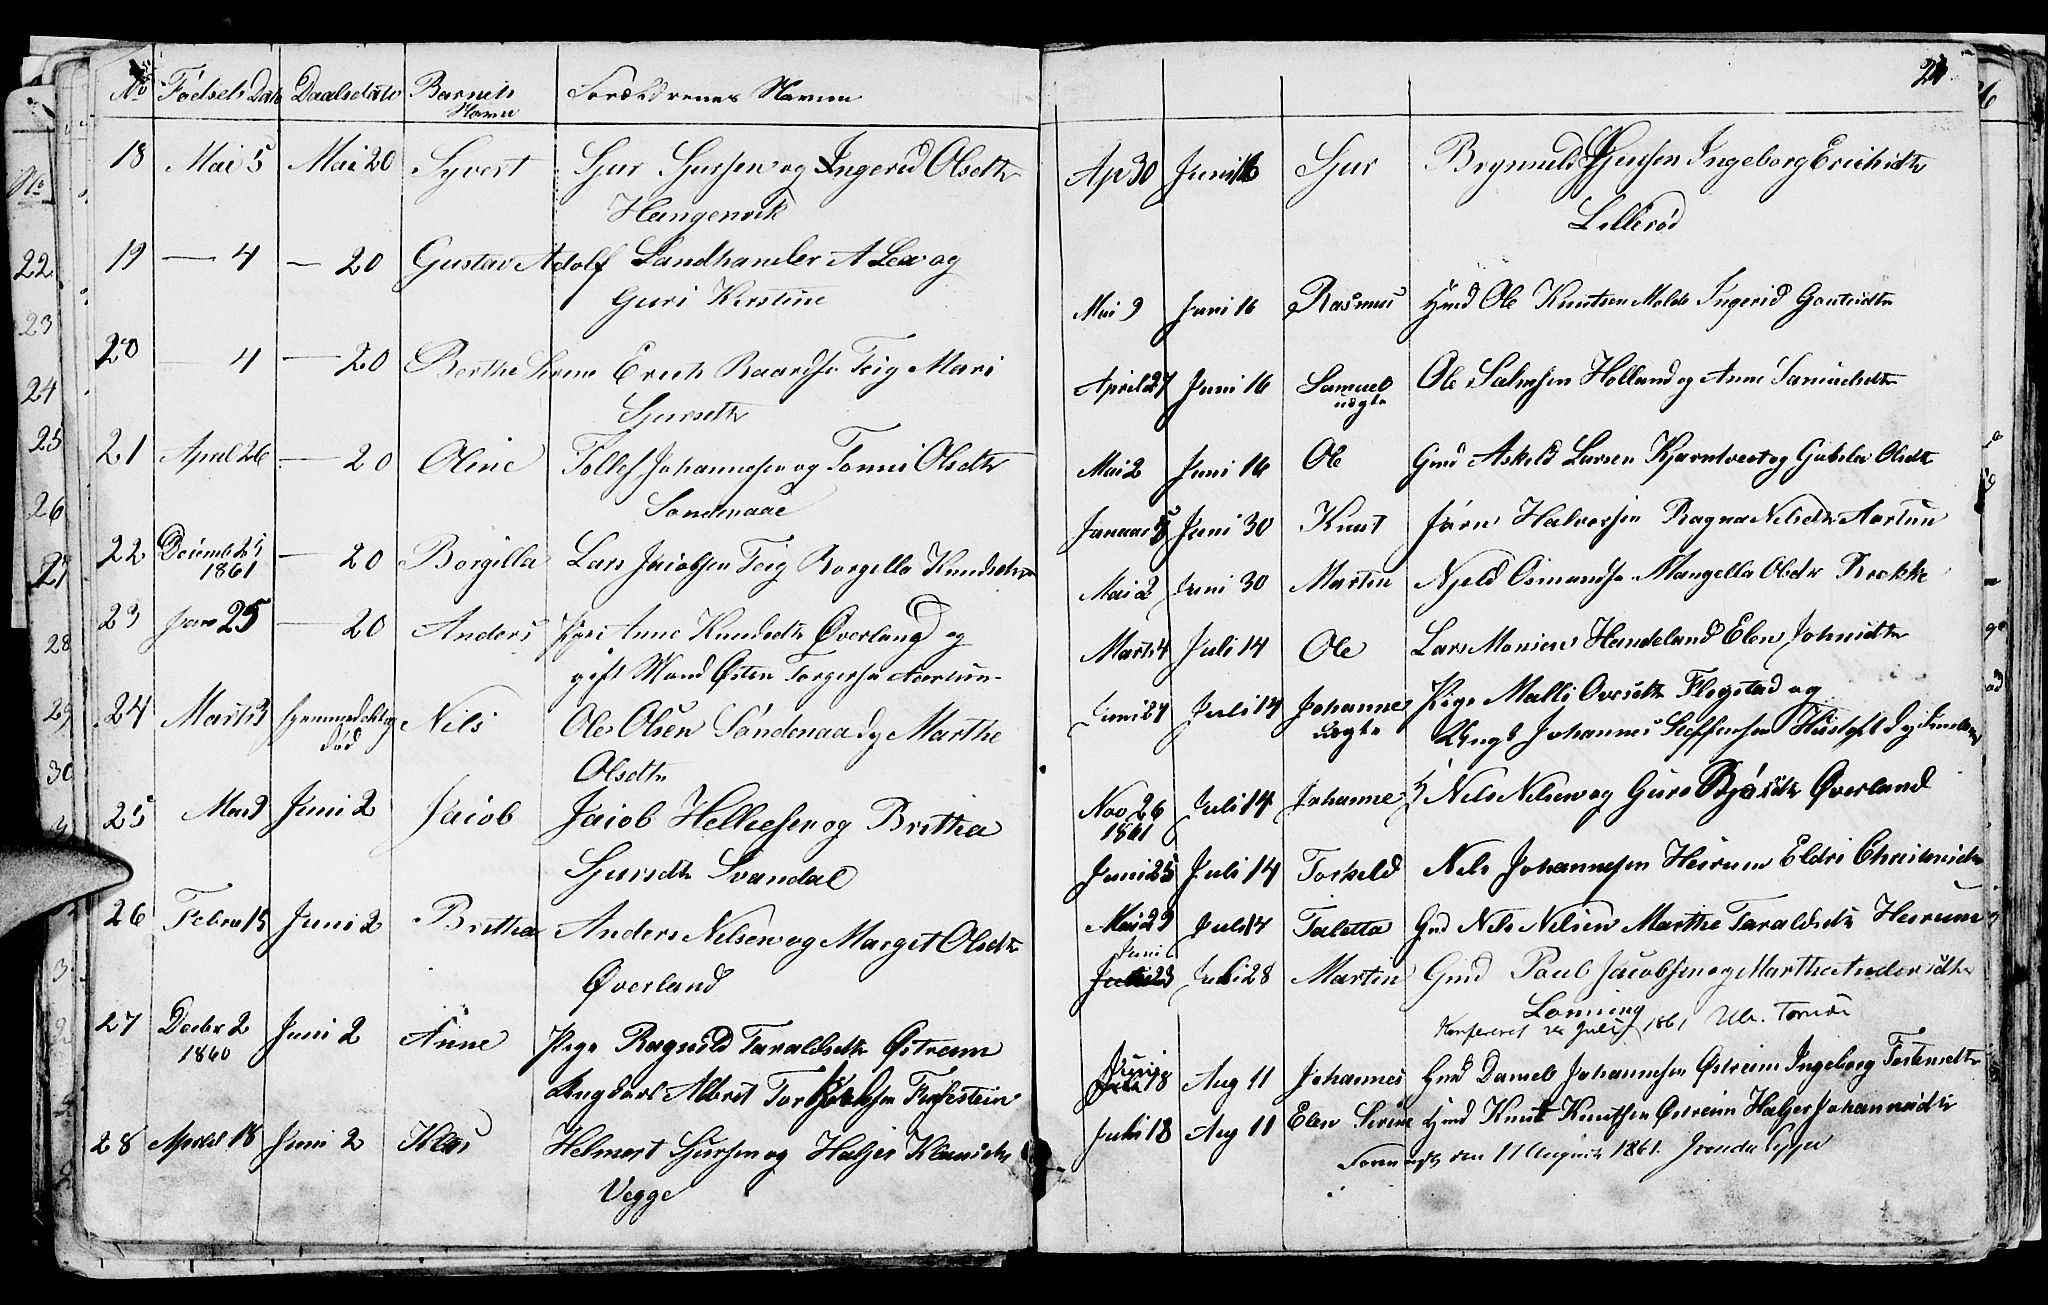 No Fødsels Dato Daabsdato Barnets Navn Forældrenes Navne
18 Mai 5 Mai 20 Syvert Sjur Sjursen og Ingerid Olsdtr
Hangenvik
19 — 4 — 20 Gustav Adolf Landhandler A Lea og
Guri Kirstine
20 — 4 — 20 Berthe Serine Erich Baardsen Teig Mari
Sjursdtr
21 April 26 — 20 Oline Tollef Johannesen og Tomine Olsdtr
Søndenaae
22 Decemb 25 — 20 Borgilla Lars Jacobsen Teig Borgilla Knudsdtr
1861
23 Janu 25 — 20 Anders Pige Anne Knudsdtr Øverland og
gift Mand Østen Torgersen Aartun
24 Marts 3 hjemmedøbt og Nils Ole Olsen Søndenaa og Marthe
død
Olsdtr
25 Mai 9 Juni 2 Jacob Jacob Helliesen og Britha
Sjursdtr Svandal
26 Februa 15 Juni 2 Britha Anders Nilsen og Marget Olsdtr
Øverland
27 Decbr 2 Juni 2 Anne Pige Ragnild Taraldsdtr Østreim
1860
Ungkarl Albret Torkelsen
28 April 18 Juni 2 Klas Helmert Sjursen og Haljer Klausdtr
Vegge
21
Ap 30 Juni 16 Sjur Brynnild Sjursen Ingeborg Erichsdtr
Lillerød
Mai 9 Juni 16 Rasmus Gmd Ole Knutsen Molde Ingerid Gautesdtr
April 27 Juni 16 Samuel Ole Salmsen Holland og Anne Samuelsdtr
uægte
Mai 2 Juni 16 Ole Gmd Askeld Larsen Kjærntveet og Gabela Olsdtr
Januar 5 Juni 30 Knut Jørn Halvorsen Ragna Nilsdtr Aartun
Mai 2 Juni 30 Martin Njeld Osmundsen Mangella Olsdtr Brekke
Marts 4 Juli 14 Ole Lars Monsen Handeland Elen Johnsdtr
Juni 24 Juli 14 Johannes Pige Malli Ovesdtr Flogstad og
uægte Ungk Johannes Steffensen
Nov 26 Juli 14 Johanne Nils Nilsen og Guro Øverland
1861
Juni 25 Juli 14 Torkeld Nils Johannesen Heirum Eldri
Mai 29 Juli 14 Taletta Gmd Nils Nilsen Marthe Taraldsdtr Heirum
Juni
Juli 23 Juli 28 Martin Gmd Poul Jacobsen og Marthe Andersdtr
Lønning
Konfereret 28 Juli 1861
Juni
Juli 18 Aug 11 Johannes Gmd Daniel Johannesen Østreim Ingeborg Torstensdtr
Juli 18 Aug 11 Elen Serine Gmd Knut Knutsen Østreim Haljer Johannesdtr
den 11 August 1861.